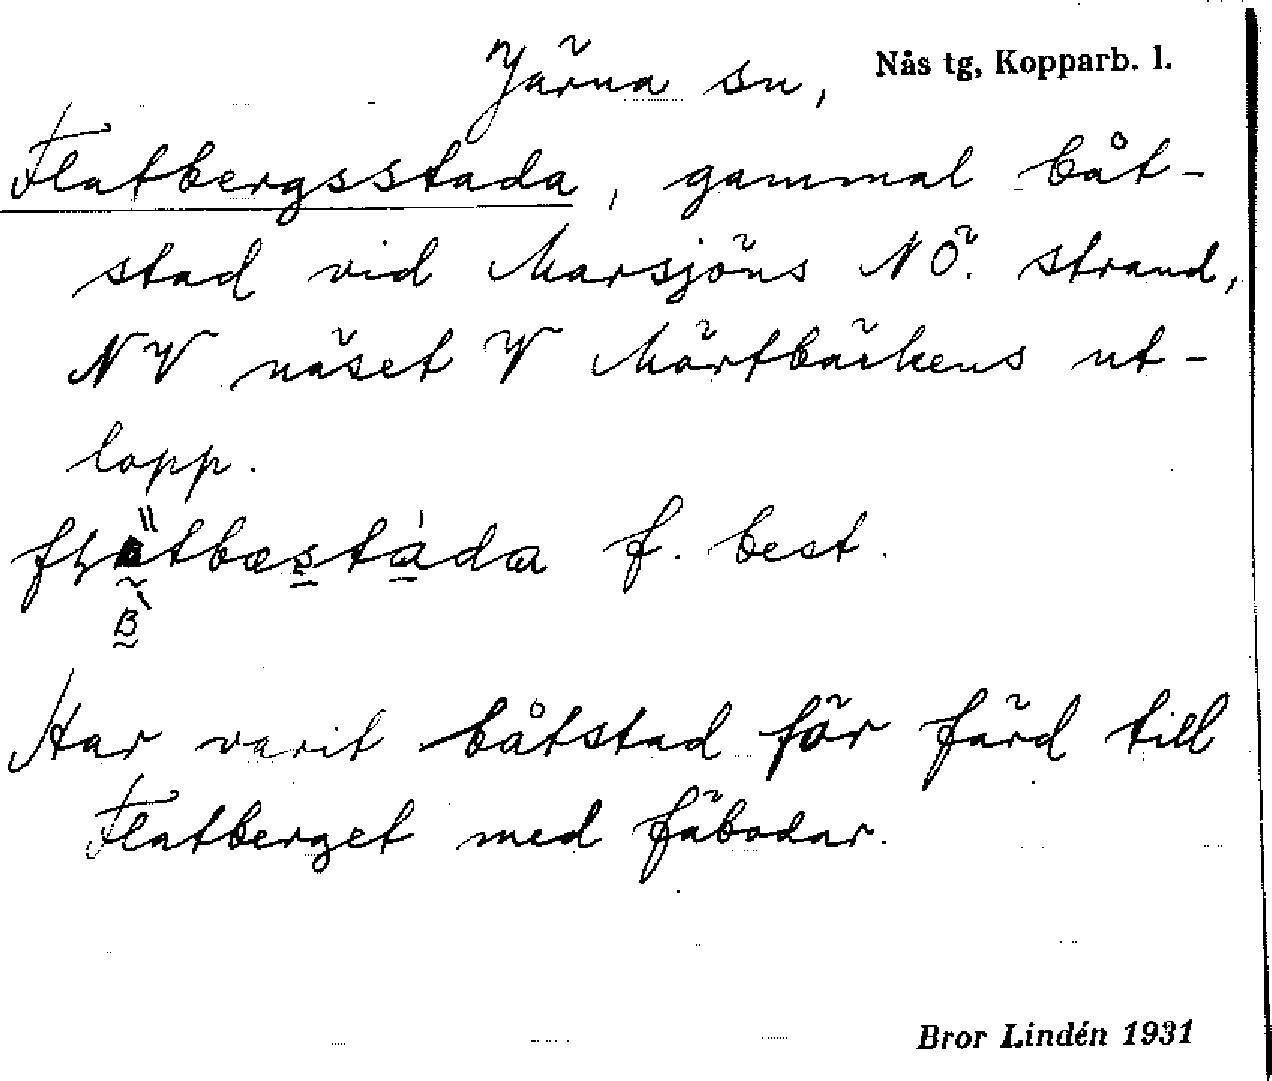 Järna sn, Nås tg, Kopparb. l.
Flatbergsstada, gammal båt-
stad vid Marsjöns NÖ. strand,
NV näset V Mörtbäckens ut-
lopp.
f. best.
Har varit båtstad för färd till
Flatberget med fäbodar.
Bror Lindén 1931